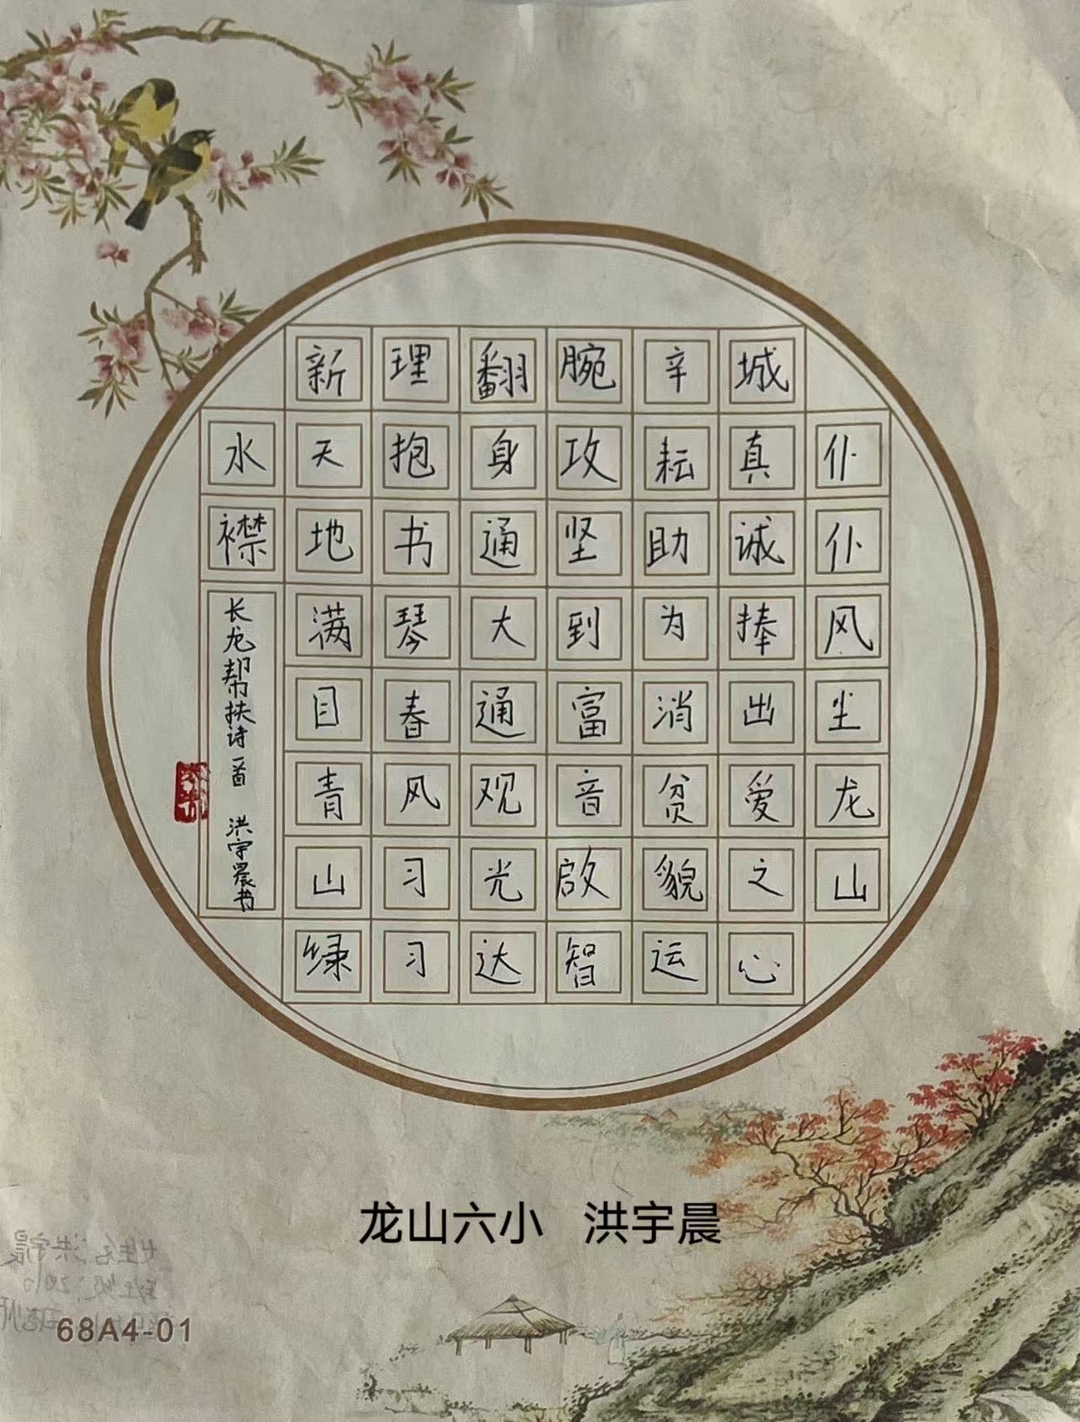 仆仆风尘龙山
城真诚捧出爱之心
辛耘助为消贫貌运
腕攻坚到富音启智
翻身通大通观光达
理抱书琴春风习习
新天地满目青山绿
水襟
长龙帮扶诗一首 洪宇晨书
龙山六小 洪宇晨
68A4-01